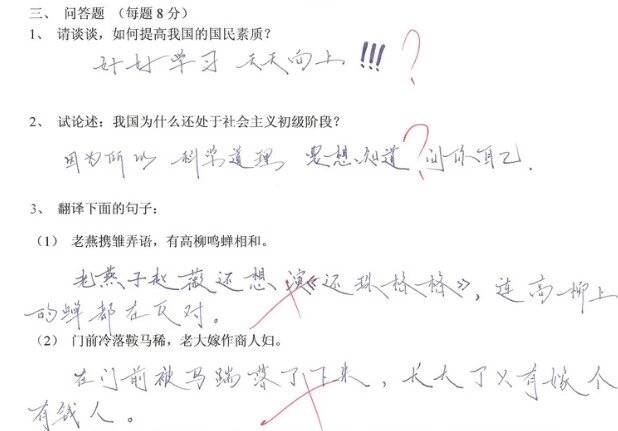 三、 问答题 （每题 8 分）
1、 请谈谈，如何提高我国的国民素质？
好好学习 天天向上 !!! ?
2、 试论述：我国为什么还处于社会主义初级阶段？
因为所以 科学道理 要想知道 ? 问你自己.
3、 翻译下面的句子：
（1） 老燕携雏弄语，有高柳鸣蝉相和。
老燕子赵薇还想演《还珠格格》，连高柳上
的蝉都在反对。
（2） 门前冷落鞍马稀，老大嫁作商人妇。
在门前被马踹落了下来，长大了只有嫁个
有钱人。